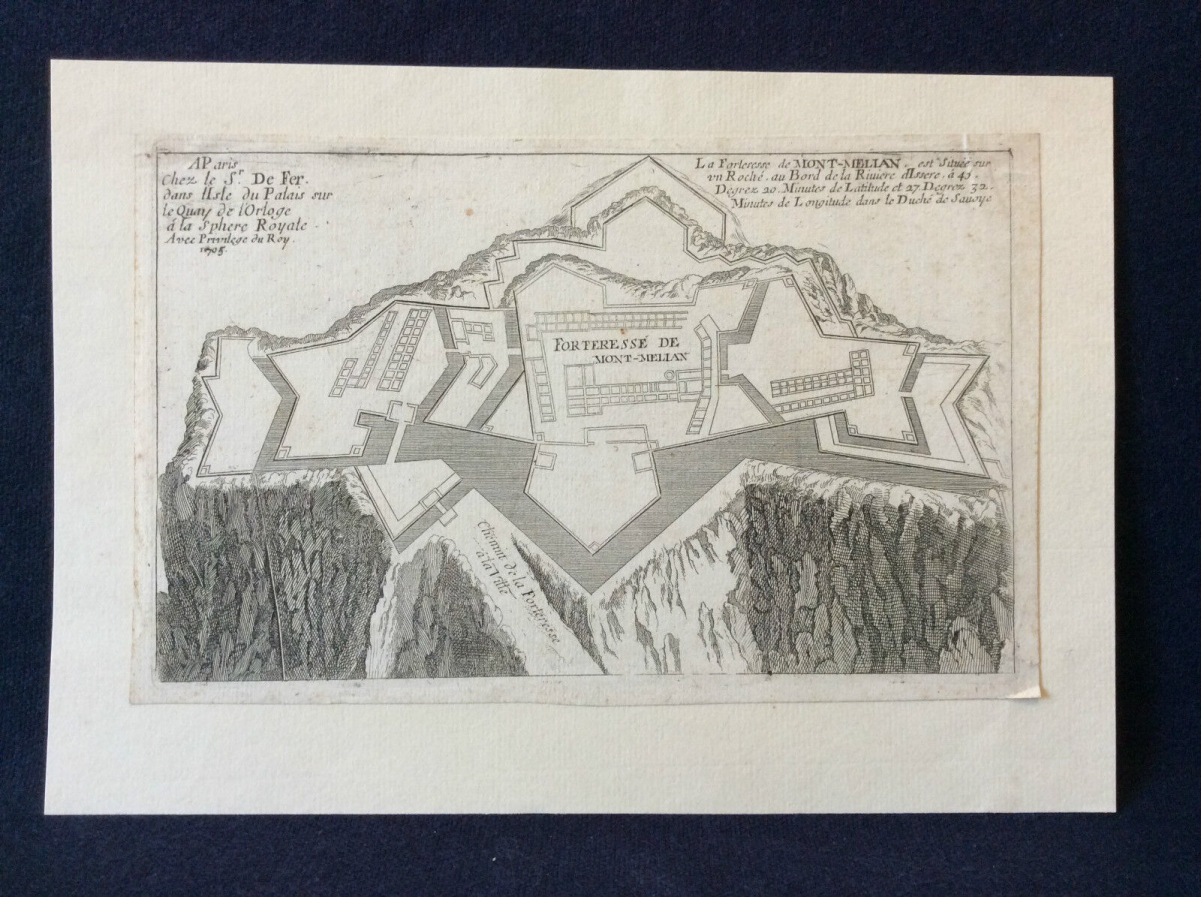 A Paris
Chez le Sr. De Fer.
dans l'Isle du Palais sur
le Quay de l'Orloge
á la Sphere Royale.
Avec Privilege du Roy.
1705.
La Forteresse de MONT-MELIAN. est Située sur
vn Roché. au Bord de la Riviere d'Issere. à 45.
Degrez 20. Minutes de Latitude et 27 Degrez 32.
Minutes de Longitude dans le Duché de Savoye
FORTERESSÉ DE
MONT-MELIAN
Chemin de la Forteresse
à la Ville